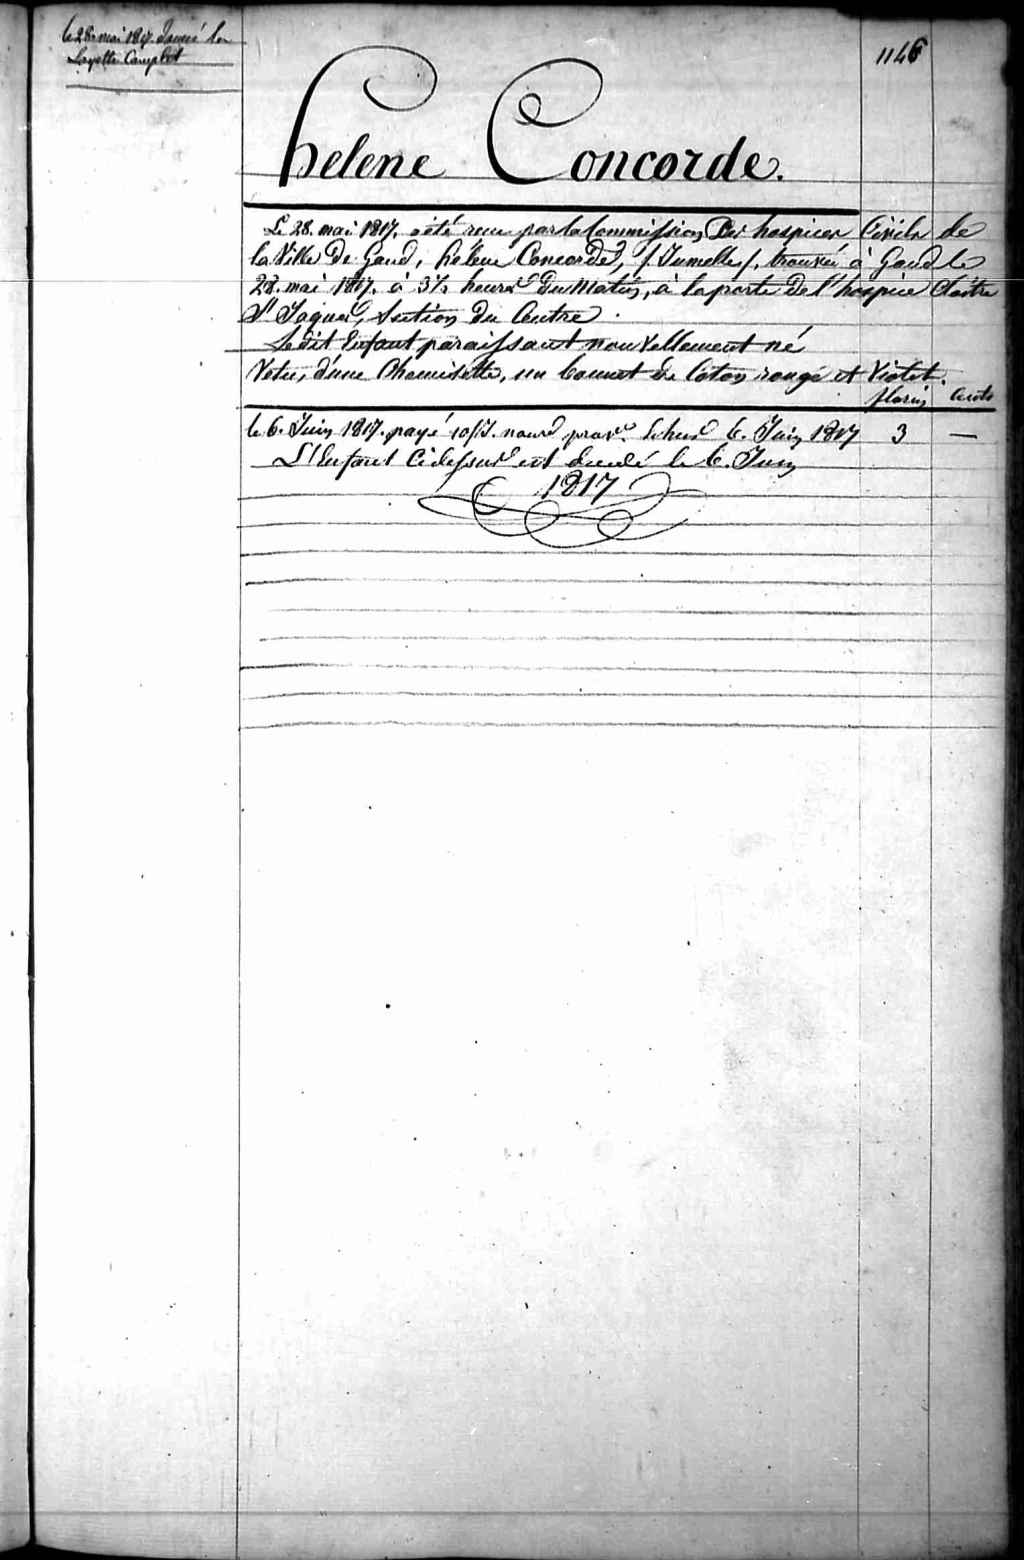 le 28 mai 1817. Donné la
Layette Complet
1146
helene Concorde.
Le 28. mai 1817. a été reçu par la Commission Des hospices Civils de
la Ville De Gand, héléne Concorde, /:Jumelle:/, trouvée à Gand le
28. mai 1817. à 3½ heures Du Matin, à la porte De l'hospice Cloitre
St Jaques, Section du Centre.
Ledit Enfant paraissant nouvellement né
Vetu, d'une Chemisette, un bonnet de Coton rouge et Violet.
florins Cents
le 6. Juin 1817. payé 10 js. nourd prov. échus 6. Juin 1817 3 —
L'Enfant Cidessus est decedé le 6. Juin
1817